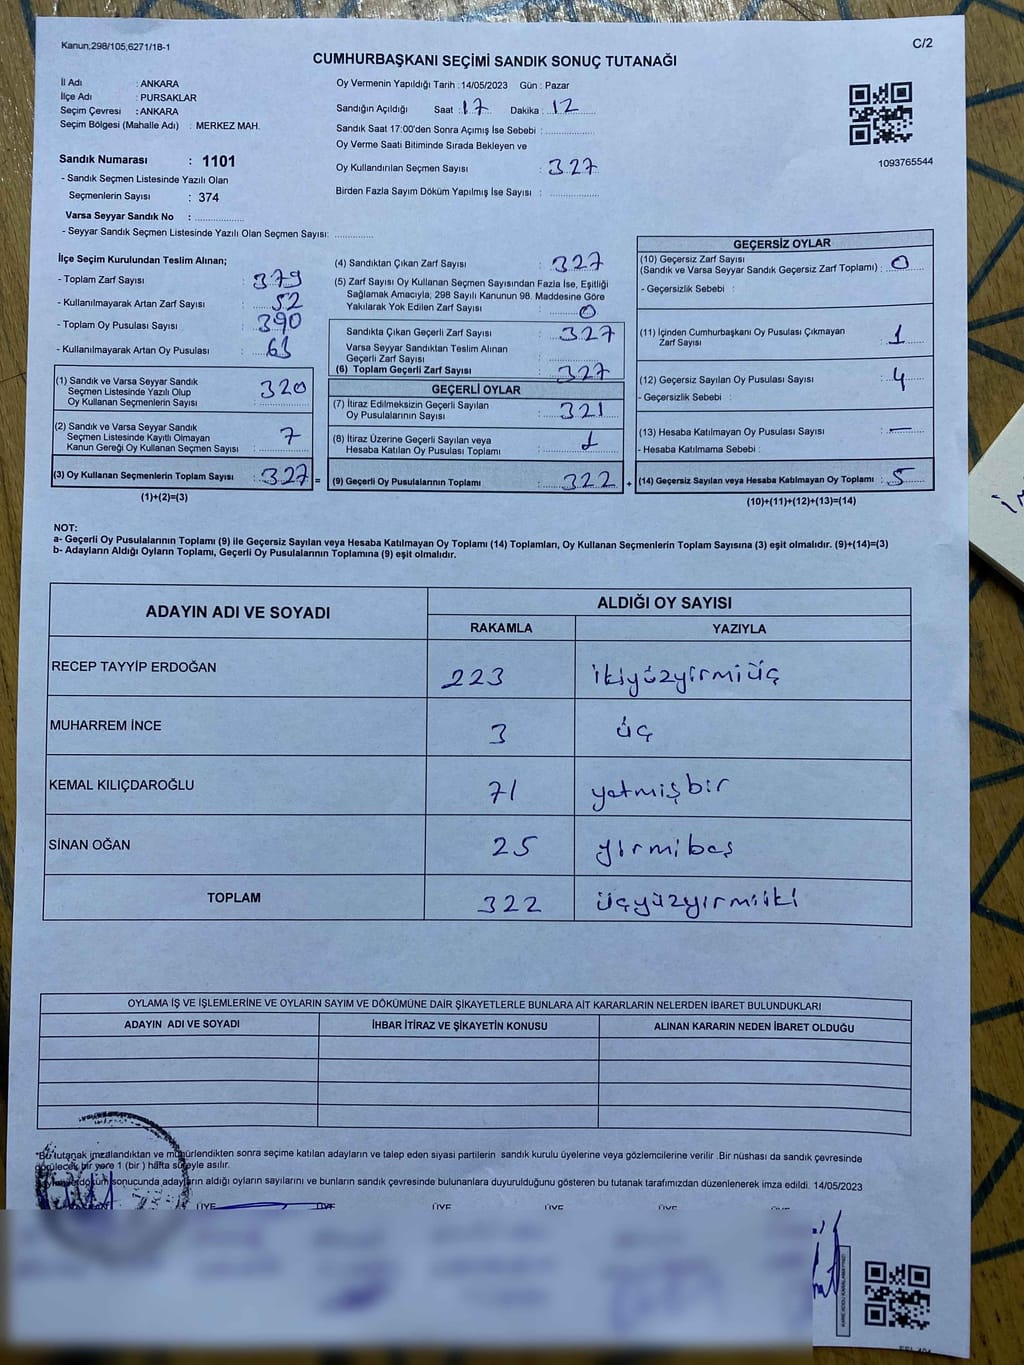 Kanun;298/105;6271/18-1
C/2
CUMHURBAŞKANI SEÇİMİ SANDIK SONUÇ TUTANAĞI
İl Adı : ANKARA
İlçe Adı : PURSAKLAR
Seçim Çevresi : ANKARA
Seçim Bölgesi (Mahalle Adı) : MERKEZ MAH.
Sandık Numarası : 1101
- Sandık Seçmen Listesinde Yazılı Olan
Seçmenlerin Sayısı : 374
Varsa Seyyar Sandık No : ..................
- Seyyar Sandık Seçmen Listesinde Yazılı Olan Seçmen Sayısı: ..............
Oy Vermenin Yapıldığı Tarih : 14/05/2023 Gün : Pazar
Sandığın Açıldığı Saat : 17 Dakika : 12
Sandık Saat 17:00'den Sonra Açımış İse Sebebi : ..................
Oy Verme Saati Bitiminde Sırada Bekleyen ve
Oy Kullandırılan Seçmen Sayısı : 327
Birden Fazla Sayım Döküm Yapılmış İse Sayısı : ..................
1093765544
İlçe Seçim Kurulundan Teslim Alınan;
- Toplam Zarf Sayısı : 379
- Kullanılmayarak Artan Zarf Sayısı : 52
- Toplam Oy Pusulası Sayısı : 390
- Kullanılmayarak Artan Oy Pusulası : 63
(1) Sandık ve Varsa Seyyar Sandık
Seçmen Listesinde Yazılı Olup
Oy Kullanan Seçmenlerin Sayısı : 320
(2) Sandık ve Varsa Seyyar Sandık
Seçmen Listesinde Kayıtlı Olmayan
Kanun Gereği Oy Kullanan Seçmen Sayısı : 7
(3) Oy Kullanan Seçmenlerin Toplam Sayısı : 327 =
(1)+(2)=(3)
(4) Sandıktan Çıkan Zarf Sayısı : 327
(5) Zarf Sayısı Oy Kullanan Seçmen Sayısından Fazla İse, Eşitliği
Sağlamak Amacıyla, 298 Sayılı Kanunun 98. Maddesine Göre
Yakılarak Yok Edilen Zarf Sayısı : 0
Sandıkta Çıkan Geçerli Zarf Sayısı : 327
Varsa Seyyar Sandıktan Teslim Alınan
Geçerli Zarf Sayısı :
(6) Toplam Geçerli Zarf Sayısı : 327
GEÇERLİ OYLAR
(7) İtiraz Edilmeksizin Geçerli Sayılan
Oy Pusulalarının Sayısı : 321
(8) İtiraz Üzerine Geçerli Sayılan veya
Hesaba Katılan Oy Pusulası Toplamı : 1
(9) Geçerli Oy Pusulalarının Toplamı : 322 +
GEÇERSİZ OYLAR
(10) Geçersiz Zarf Sayısı
(Sandık ve Varsa Seyyar Sandık Geçersiz Zarf Toplamı) : 0
- Geçersizlik Sebebi :
(11) İçinden Cumhurbaşkanı Oy Pusulası Çıkmayan
Zarf Sayısı : 1
(12) Geçersiz Sayılan Oy Pusulası Sayısı : 4
- Geçersizlik Sebebi :
(13) Hesaba Katılmayan Oy Pusulası Sayısı : —
- Hesaba Katılmama Sebebi :
(14) Geçersiz Sayılan veya Hesaba Katılmayan Oy Toplamı : 5
(10)+(11)+(12)+(13)=(14)
NOT:
a- Geçerli Oy Pusulalarının Toplamı (9) ile Geçersiz Sayılan veya Hesaba Katılmayan Oy Toplamı (14) Toplamları, Oy Kullanan Seçmenlerin Toplam Sayısına (3) eşit olmalıdır. (9)+(14)=(3)
b- Adayların Aldığı Oyların Toplamı, Geçerli Oy Pusulalarının Toplamına (9) eşit olmalıdır.
ADAYIN ADI VE SOYADI ALDIĞI OY SAYISI
RAKAMLA YAZIYLA
RECEP TAYYİP ERDOĞAN 223 ikiyüzyirmiüç
MUHARREM İNCE 3 üç
KEMAL KILIÇDAROĞLU 71 yetmişbir
SİNAN OĞAN 25 yirmibeş
TOPLAM 322 üçyüzyirmiiki
OYLAMA İŞ VE İŞLEMLERİNE VE OYLARIN SAYIM VE DÖKÜMÜNE DAİR ŞİKAYETLERLE BUNLARA AİT KARARLARIN NELERDEN İBARET BULUNDUKLARI
ADAYIN ADI VE SOYADI İHBAR İTİRAZ VE ŞİKAYETİN KONUSU ALINAN KARARIN NEDEN İBARET OLDUĞU
*Bu tutanak imzalandıktan ve mühürlendikten sonra seçime katılan adayların ve talep eden siyasi partilerin sandık kurulu üyelerine veya gözlemcilerine verilir .Bir nüshası da sandık çevresinde
görülecek bir yere 1 (bir ) hafta süreyle asılır.
sonucunda adayların aldığı oyların sayılarını ve bunların sandık çevresinde bulunanlara duyurulduğunu gösteren bu tutanak tarafımızdan düzenlenerek imza edildi. 14/05/2023
ÜYE ÜYE ÜYE ÜYE ÜYE ÜYE